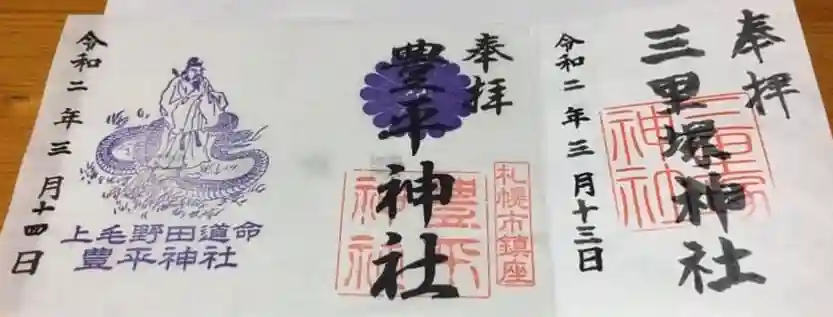 奉拝
三里塚神社
三里塚神社
令和二年三月十三日
奉拝
豊平神社
札幌市鎮座
豊平神社
上毛野田道命
豊平神社
令和二年三月十四日